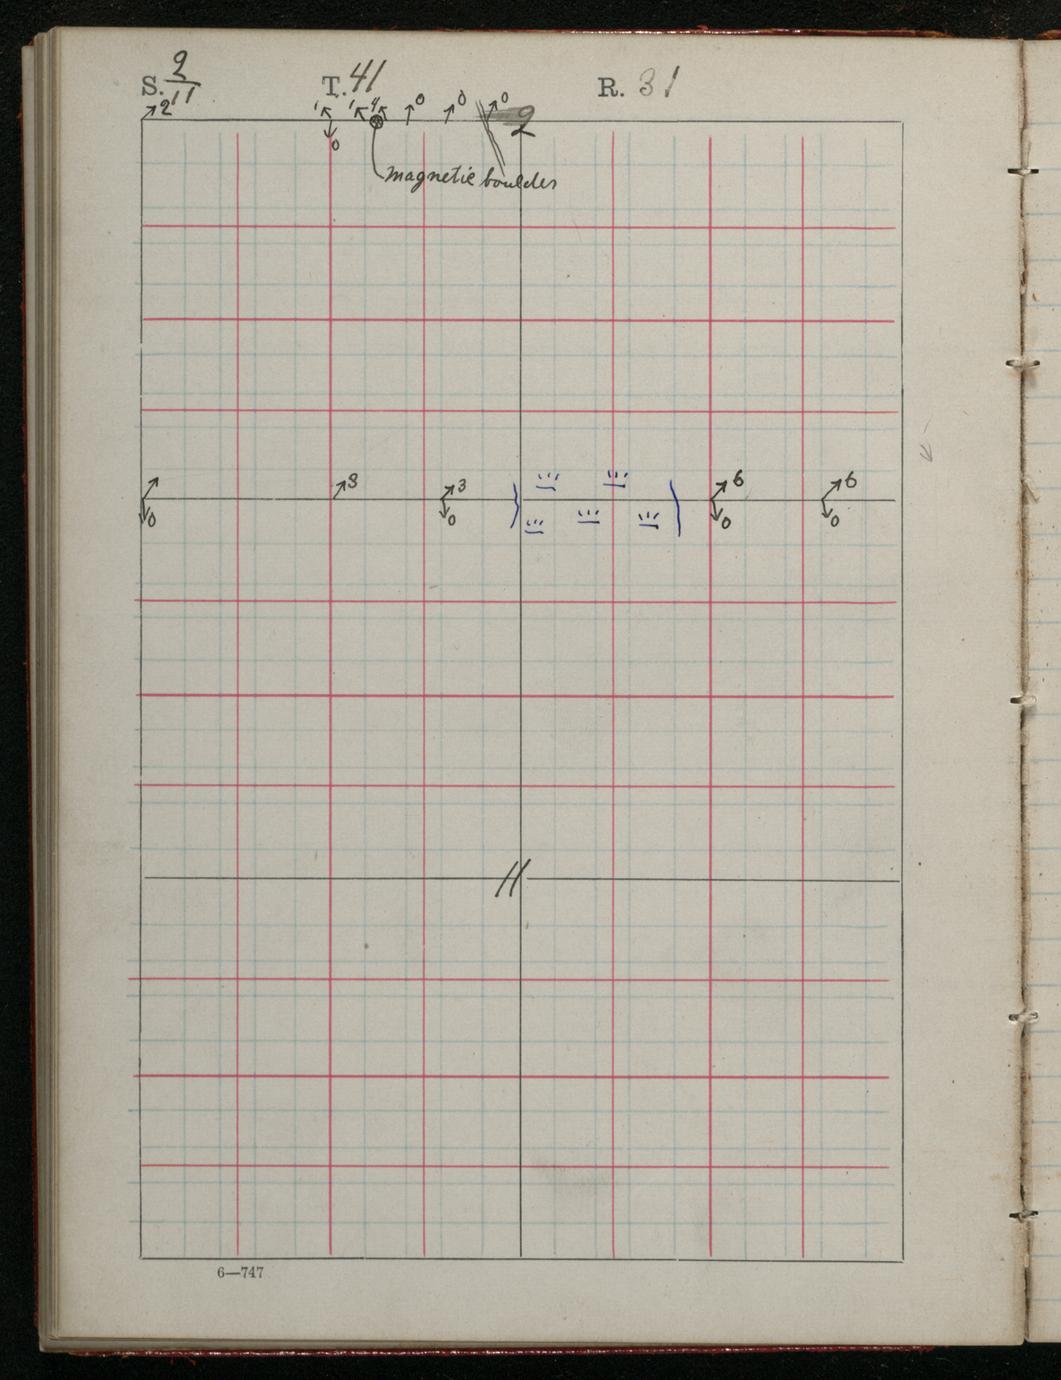 S. 2/11 T. 41 R. 31
2 1 1 4 0 0 0 2
0
magnetic boulder
3 3 6 6
0 0 0 0
11
6—747